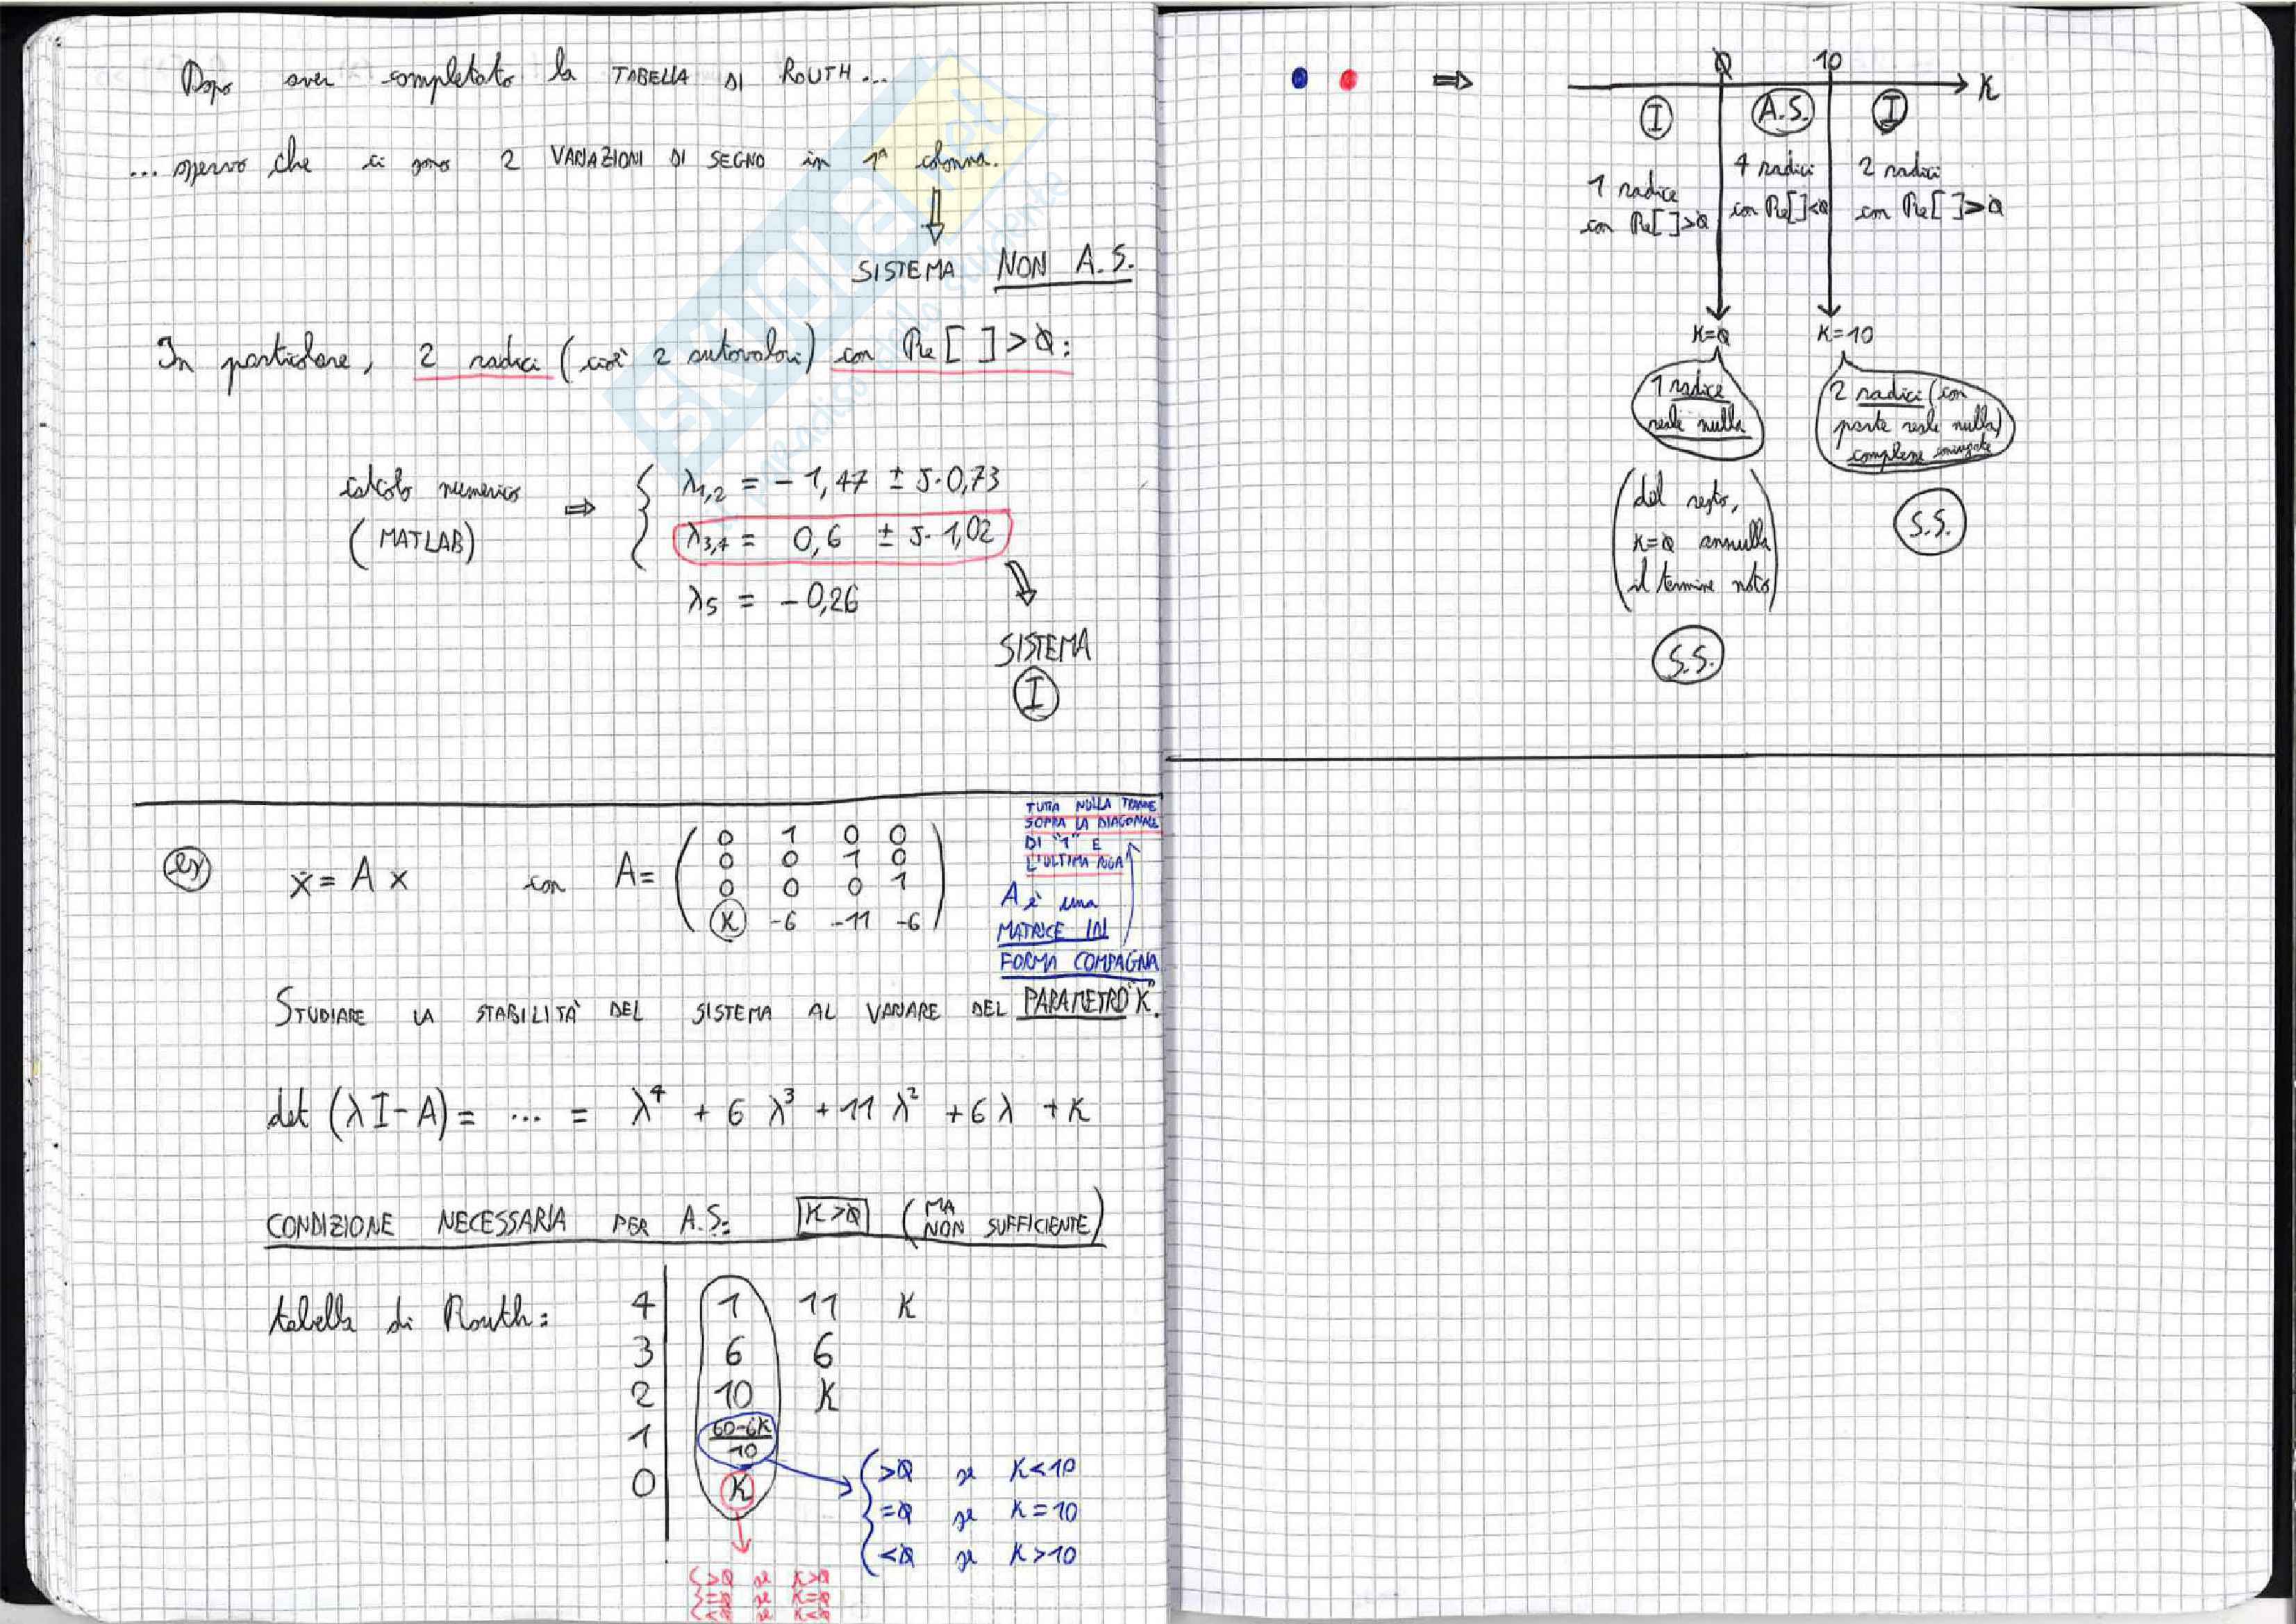 Dopo aver completato la TABELLA DI ROUTH...
... osservo che ci sono 2 VARIAZIONI DI SEGNO in 1ª colonna.
⇓
SISTEMA NON A.S.
In particolare, 2 radici (cioè 2 autovalori) con Re[ ]>0:
calcolo numerico
(MATLAB)
⇒
λ1,2 = -1,47 ± J·0,73
λ3,4 = 0,6 ± J·1,02
λ5 = -0,26
SISTEMA
I
es
ẋ = A x con A=
0 1 0 0
0 0 1 0
0 0 0 1
K -6 -11 -6
TUTTA NULLA TRANNE
SOPRA LA DIAGONALE
DI "1" E
L'ULTIMA RIGA
A è una
MATRICE IN
FORMA COMPAGNA
STUDIARE LA STABILITÀ DEL SISTEMA AL VARIARE DEL PARAMETRO "K".
det (λI-A) = ... = λ⁴ + 6 λ³ + 11 λ² + 6 λ + K
CONDIZIONE NECESSARIA PER A.S.: K>0 (MA NON SUFFICIENTE)
tabella di Routh:
4 1 11 K
3 6 6
2 10 K
1 60-6K/10
0 K
>0 se K<10
=0 se K=10
<0 se K>10
>0 se K>0
=0 se K=0
<0 se K<0
⇒
0 10 K
I A.S. I
1 radice
con Re[ ]>0
4 radici
con Re[ ]<0
2 radici
con Re[ ]>0
K=0 K=10
1 radice
reale nulla
2 radici (con
parte reale nulla)
complesse coniugate
(del resto,
K=0 annulla
il termine noto)
S.S.
S.S.
SKUOLA.net
il paradiso dello studente